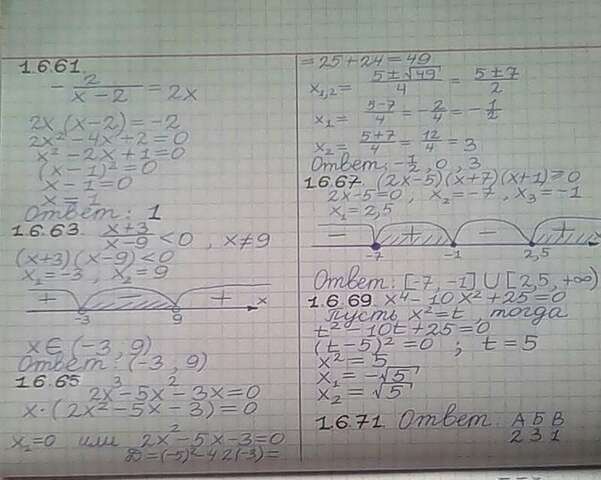 1.6.61.
- 2/(x-2) = 2x
2x (x-2) = -2
2x² - 4x + 2 = 0
x² - 2x + 1 = 0
(x-1)² = 0
x - 1 = 0
x = 1
Ответ: 1
1.6.63. (x+3)/(x-9) < 0, x ≠ 9
(x+3)(x-9) < 0
x₁ = -3, x₂ = 9
+ - + x
-3 9
x ∈ (-3, 9)
Ответ: (-3, 9)
1.6.65
2x³ - 5x² - 3x = 0
x·(2x² - 5x - 3) = 0
x₂=0 или 2x² - 5x - 3 = 0
D = (-5)² - 4 2(-3) =
= 25 + 24 = 49
x₁,₂ = (5±√49)/4 = (5±7)/2
x₁ = (5-7)/4 = -2/4 = -1/2
x₂ = (5+7)/4 = 12/4 = 3
Ответ: -1/2, 0, 3
1.6.67. (2x-5)(x+7)(x+1) ≥ 0
2x-5=0, x₂=-7, x₃=-1
x₁ = 2,5
- + - + x
-7 -1 2,5
Ответ: [-7, -1] ∪ [2,5, +∞)
1.6.69. x⁴ - 10x² + 25 = 0
Пусть x² = t, тогда
t² - 10t + 25 = 0
(t-5)² = 0 ; t = 5
x² = 5
x₁ = -√5
x₂ = √5
1.6.71. Ответ: А Б В
2 3 1